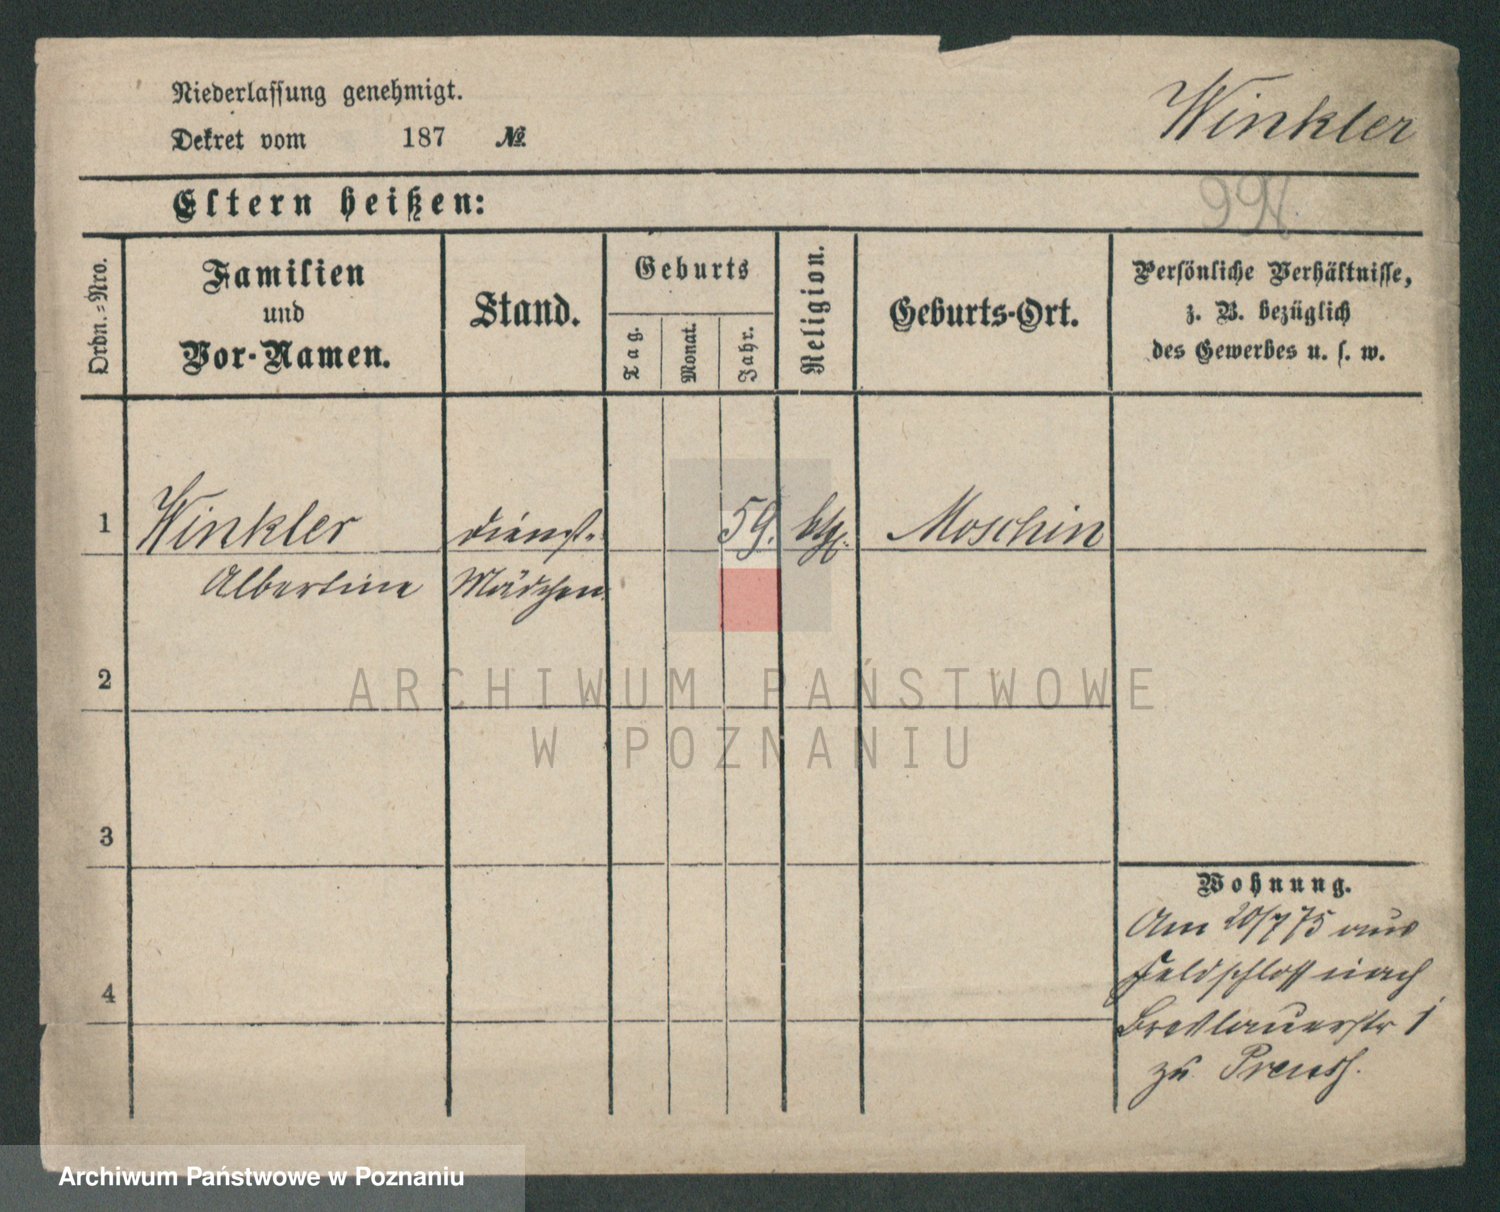 Niederlassung genehmigt.
Dekret vom 187 №
Winkler
Eltern heißen:
Ordn.-Nro.
Familien
und
Vor-Namen.
Stand.
Geburts
Tag.
Monat.
Jahr.
Religion.
Geburts-Ort.
Persönliche Verhältnisse,
z. B. bezüglich
des Gewerbes u. s. w.
1 Winkler Dienst- 59. Moschin
Albertine Mädchen
2
3
4
Wohnung.
Am 20/7 75 aus
Feldschloss nach
Breslauerstr 1
zu
ARCHIWUM PAŃSTWOWE
W POZNANIU
Archiwum Państwowe w Poznaniu